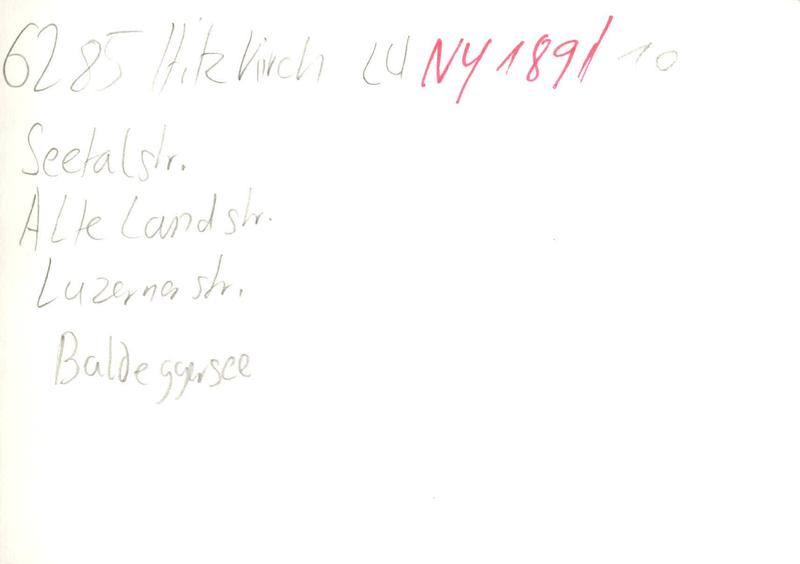 6285 Hitzkirch LU NY 1891 10
Seetalstr.
Alte Landstr.
Luzernerstr.
Baldeggersee